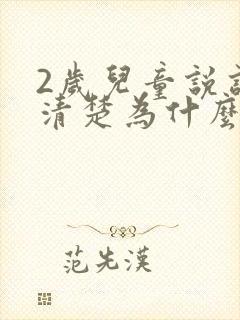 2歲兒童說
清楚為什麼
范先漢